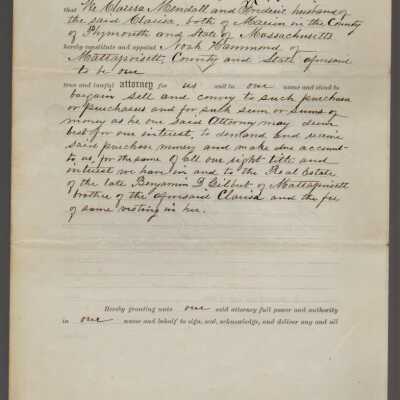 that We Clarissa Mendall and Frederic husband of
the said Clarisa, both of Marion in the County
of Plymouth and State of Massachusetts
hereby constitute and appoint Noah Hammond of
Mattapoisett, County and State aforesaid
to be our
true and lawful attorney for us and in our name and stead to
bargain sell and convey to such purchaser
or purchasers and for such sum or sums of
money as he our said Attorney may deem
best for our interest, to demand and receive
said purchase money and make due account
to us, for the same of all our right title and
interest we have in and to the Real Estate
of the late Benjamin D Gilbert of Mattapoisett
brother of the aforesaid Clarisa and the fee
of same vesting in her.
Hereby granting unto our said attorney full power and authority
in our name and behalf to sign, seal, acknowledge, and deliver any and all